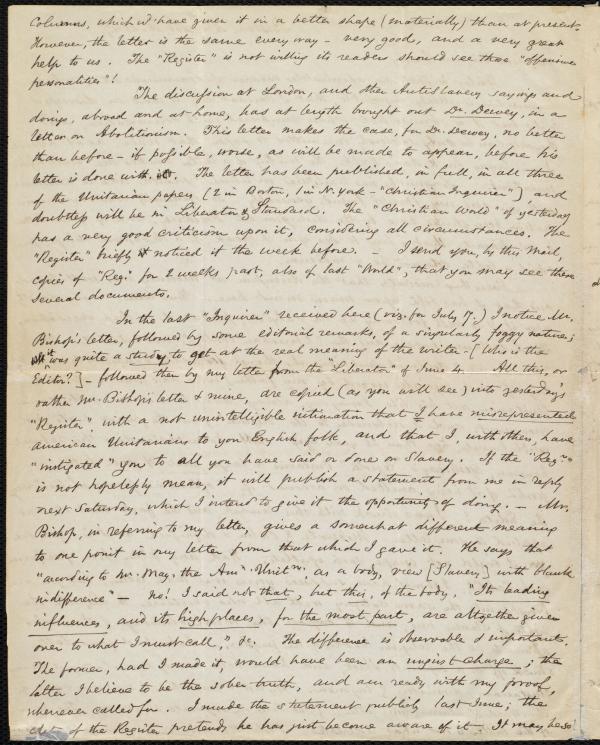 Columns, which wd have given it in a better shape (materially) than at present.
However, the letter is the same every way – very good, and a very great
help to us. The "Register" is not willing its readers should see those "offensive
personalities"!
The discussion at London, and other AntiSlavery sayings and
doings, abroad and at home, has at length brought out Dr. Dewey, in a
letter on Abolitionism. This letter makes the case, for Dr. Dewey, no better
than before – if possible, worse, as will be made to appear, before his
letter is done with. The letter has been published, in full, in all three
of the Unitarian papers (2 in Boston, 1 in N. York – "Christian Inquirer"), and
doubtless will be in Liberator & Standard. The "Christian World" of yesterday
has a very good criticism upon it, considering all circumstances. The
"Register" briefly noticed it the week before. – I send you, by this Mail,
copies of "Reg." for 2 weeks past, also of last "World", that you may see these
several documents.
In the last "Inquirer" received here (viz. for July 17.) I notice Mr.
Bishop's letter, followed by some editorial remarks, of a singularly foggy nature;
it was quite a study to get at the real meaning of the writer – [Who is the
Editor?] – followed then by my letter from the "Liberator" of June 4. All this, or
rather Mr. Bishop's letter & mine, are copied (as you will see) into yesterday's
"Register" with a not unintelligible intimation that I have misrepresented
American Unitarians to you English folk, and that I, with others, have
"instigated" you to all you have said or done on Slavery. If the "Regr."
is not hopelessly mean, it will publish a statement from me in reply
next Saturday, which I intend to give it the opportunity of doing. – Mr.
Bishop, in referring to my letter, gives a somewhat different meaning
to one point in my letter from that which I gave it. He says that
"according to Mr. May, the Amn. Unitns., as a body, view [Slavery] with blank
indifference" – no! I said not that, but this, of the body, "Its leading
influences, and its high places, for the most part, are altogether given
over to what I must call," &c. The difference is observable & important.
The former, had I made it, would have been an unjust charge; the
latter I believe to be the sober truth, and am ready with my proof,
whenever called for. I made the statement publicly last June; the
of the Register pretends he has just become aware of it. It may be so!